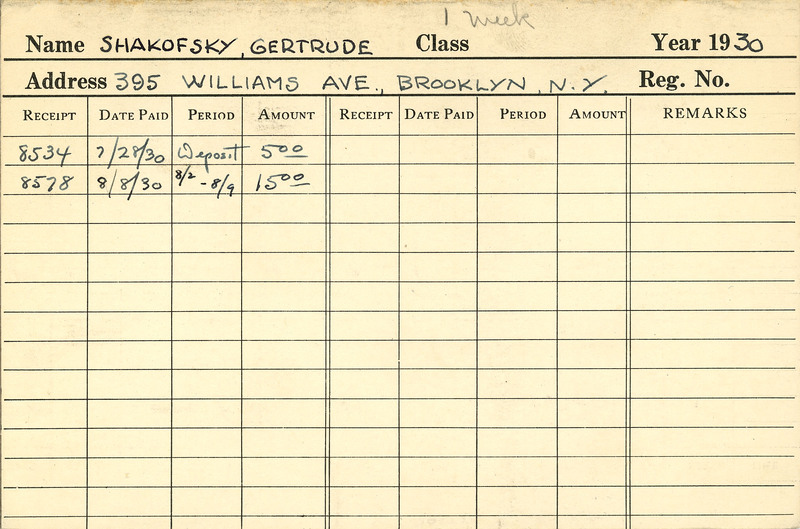 1 Week
Name SHAKOFSKY, GERTRUDE Class Year 1930
Address 395 WILLIAMS AVE., BROOKLYN, N.Y. Reg. No.
RECEIPT DATE PAID PERIOD AMOUNT RECEIPT DATE PAID PERIOD AMOUNT REMARKS
8534 7/28/30 Deposit 500
8578 8/8/30 8/2 - 8/9 1500